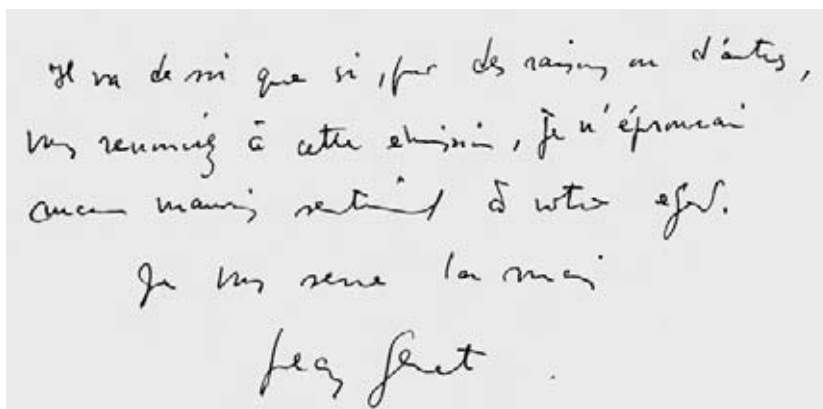 Il va de soi que si, pour des raisons ou d'autres,
vous renonciez à cette émission, je n'éprouverai
aucun mauvais sentiment à votre égard.
Je vous serre la main
Jean Genet.